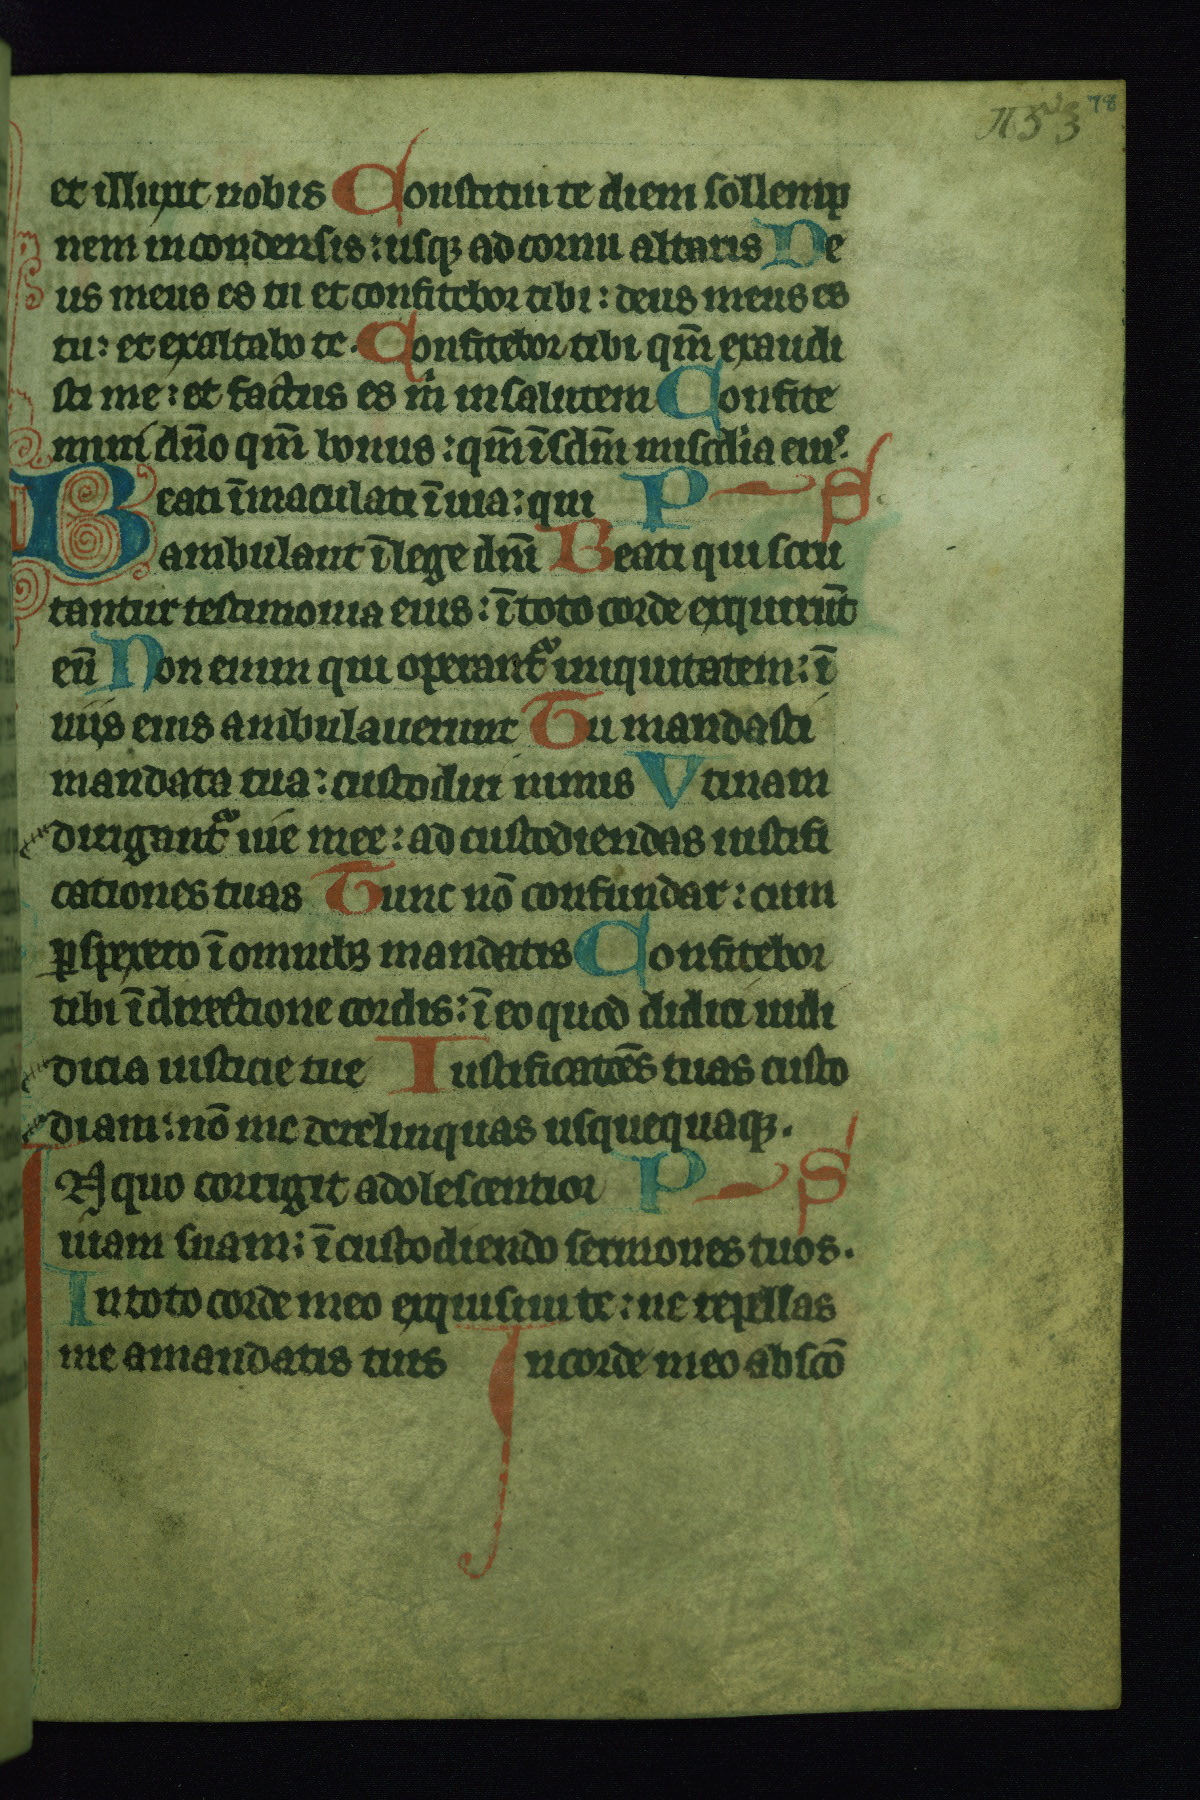 78
et illuxit nobis Constitui te diem sollemp
nem in condensis : usq; ad cornu altaris De
us meus es tu et confitebor tibi : deus meus es
tu : et exaltabo te . Confitebor tibi qm̄ exaudi
sti me : et factus es m̄ in salutem Confite
mini dn̄o qm̄ bonus : qm̄ ī scl̄m miscd̄ia eiuꝰ .
Beati īmaculati ī uia : qui P S
ambulant ī lege dn̄i Beati qui scru
tantur testimonia eius : ī toto corde exquirūt
eū Non enim qui operant᷑ iniquitatem : ī
uiis eius ambulauerunt Tu mandasti
mandata tua : custodiri nimis Vtinam
dirigant᷑ uie mee : ad custodiendas iustifi
cationes tuas Tunc nō confundar : cum
ꝑspexero ī omnib; mandatis Confitebor
tibi ī directione cordis : ī eo quod didici iudi
dicia iusticie tue Iustificatōes tuas custo
diam : nō me derelinquas usquequaq; .
In quo corrigit adolescentior P S
uiam suam : ī custodiendo sermones tuos .
In toto corde meo exquisiui te : ne repellas
me a mandatis tuis In corde meo abscō